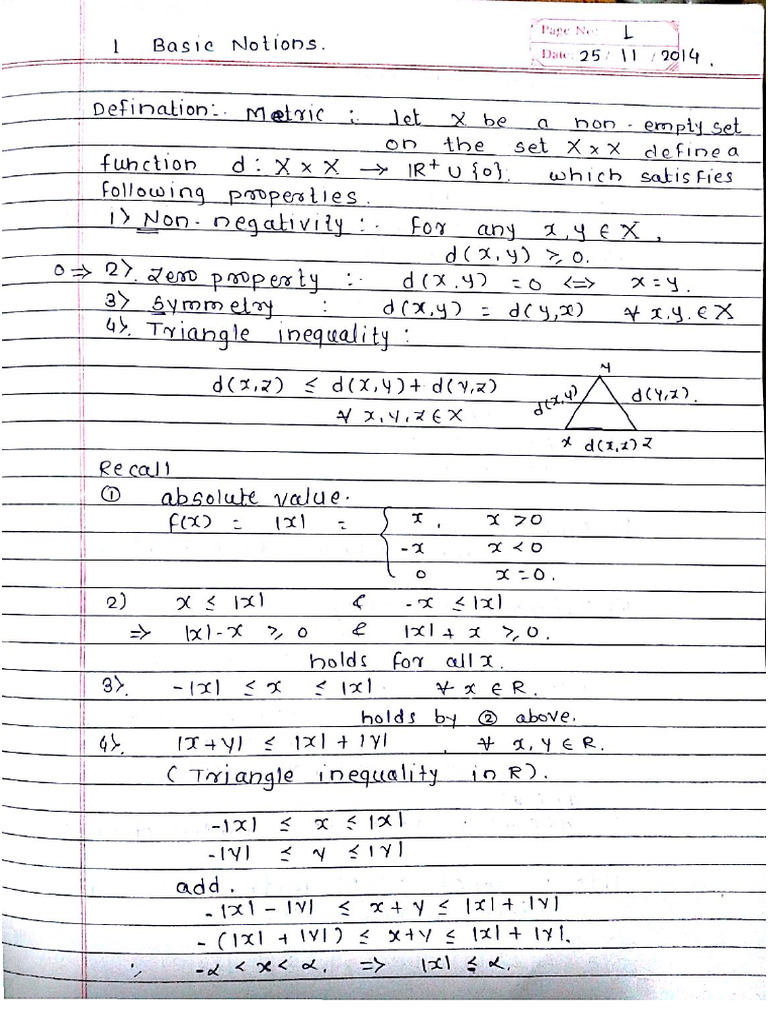 Page No: 1
1 Basic Notions.
Date: 25 / 11 / 2014.
Defination:. Metric : let X be a non-empty set
on the set X x X define a
function d : X x X → IR⁺ ∪ {0}. which satisfies
following properties.
1) Non-negativity :. for any x, y ∈ X,
d(x, y) ≥ 0.
0 ⇒ 2). Zero property :. d(x, y) = 0 ⇔ x = y.
3) Symmetry : d(x,y) = d(y,x) ∀ x,y. ∈ X
4). Triangle inequality :
y
d(x,z) ≤ d(x,y) + d(y,z) d(x,y) d(y,z).
∀ x, y, z ∈ X
x d(x,z) z
Recall
① absolute value.
f(x) = |x| = { x, x > 0
-x x < 0
0 x = 0.
2) x ≤ |x| & -x ≤ |x|
⇒ |x| - x ≥ 0 & |x| + x ≥ 0.
holds for all x.
3). -|x| ≤ x ≤ |x| ∀ x ∈ R.
holds by ② above.
4). |x + y| ≤ |x| + |y| . ∀ x, y ∈ R.
( Triangle inequality in R ).
-|x| ≤ x ≤ |x|
-|y| ≤ y ≤ |y|
add.
-|x| - |y| ≤ x + y ≤ |x| + |y|
- (|x| + |y|) ≤ x+y ≤ |x| + |y|.
∵ -α < x < α. ⇒ |x| ≤ α.